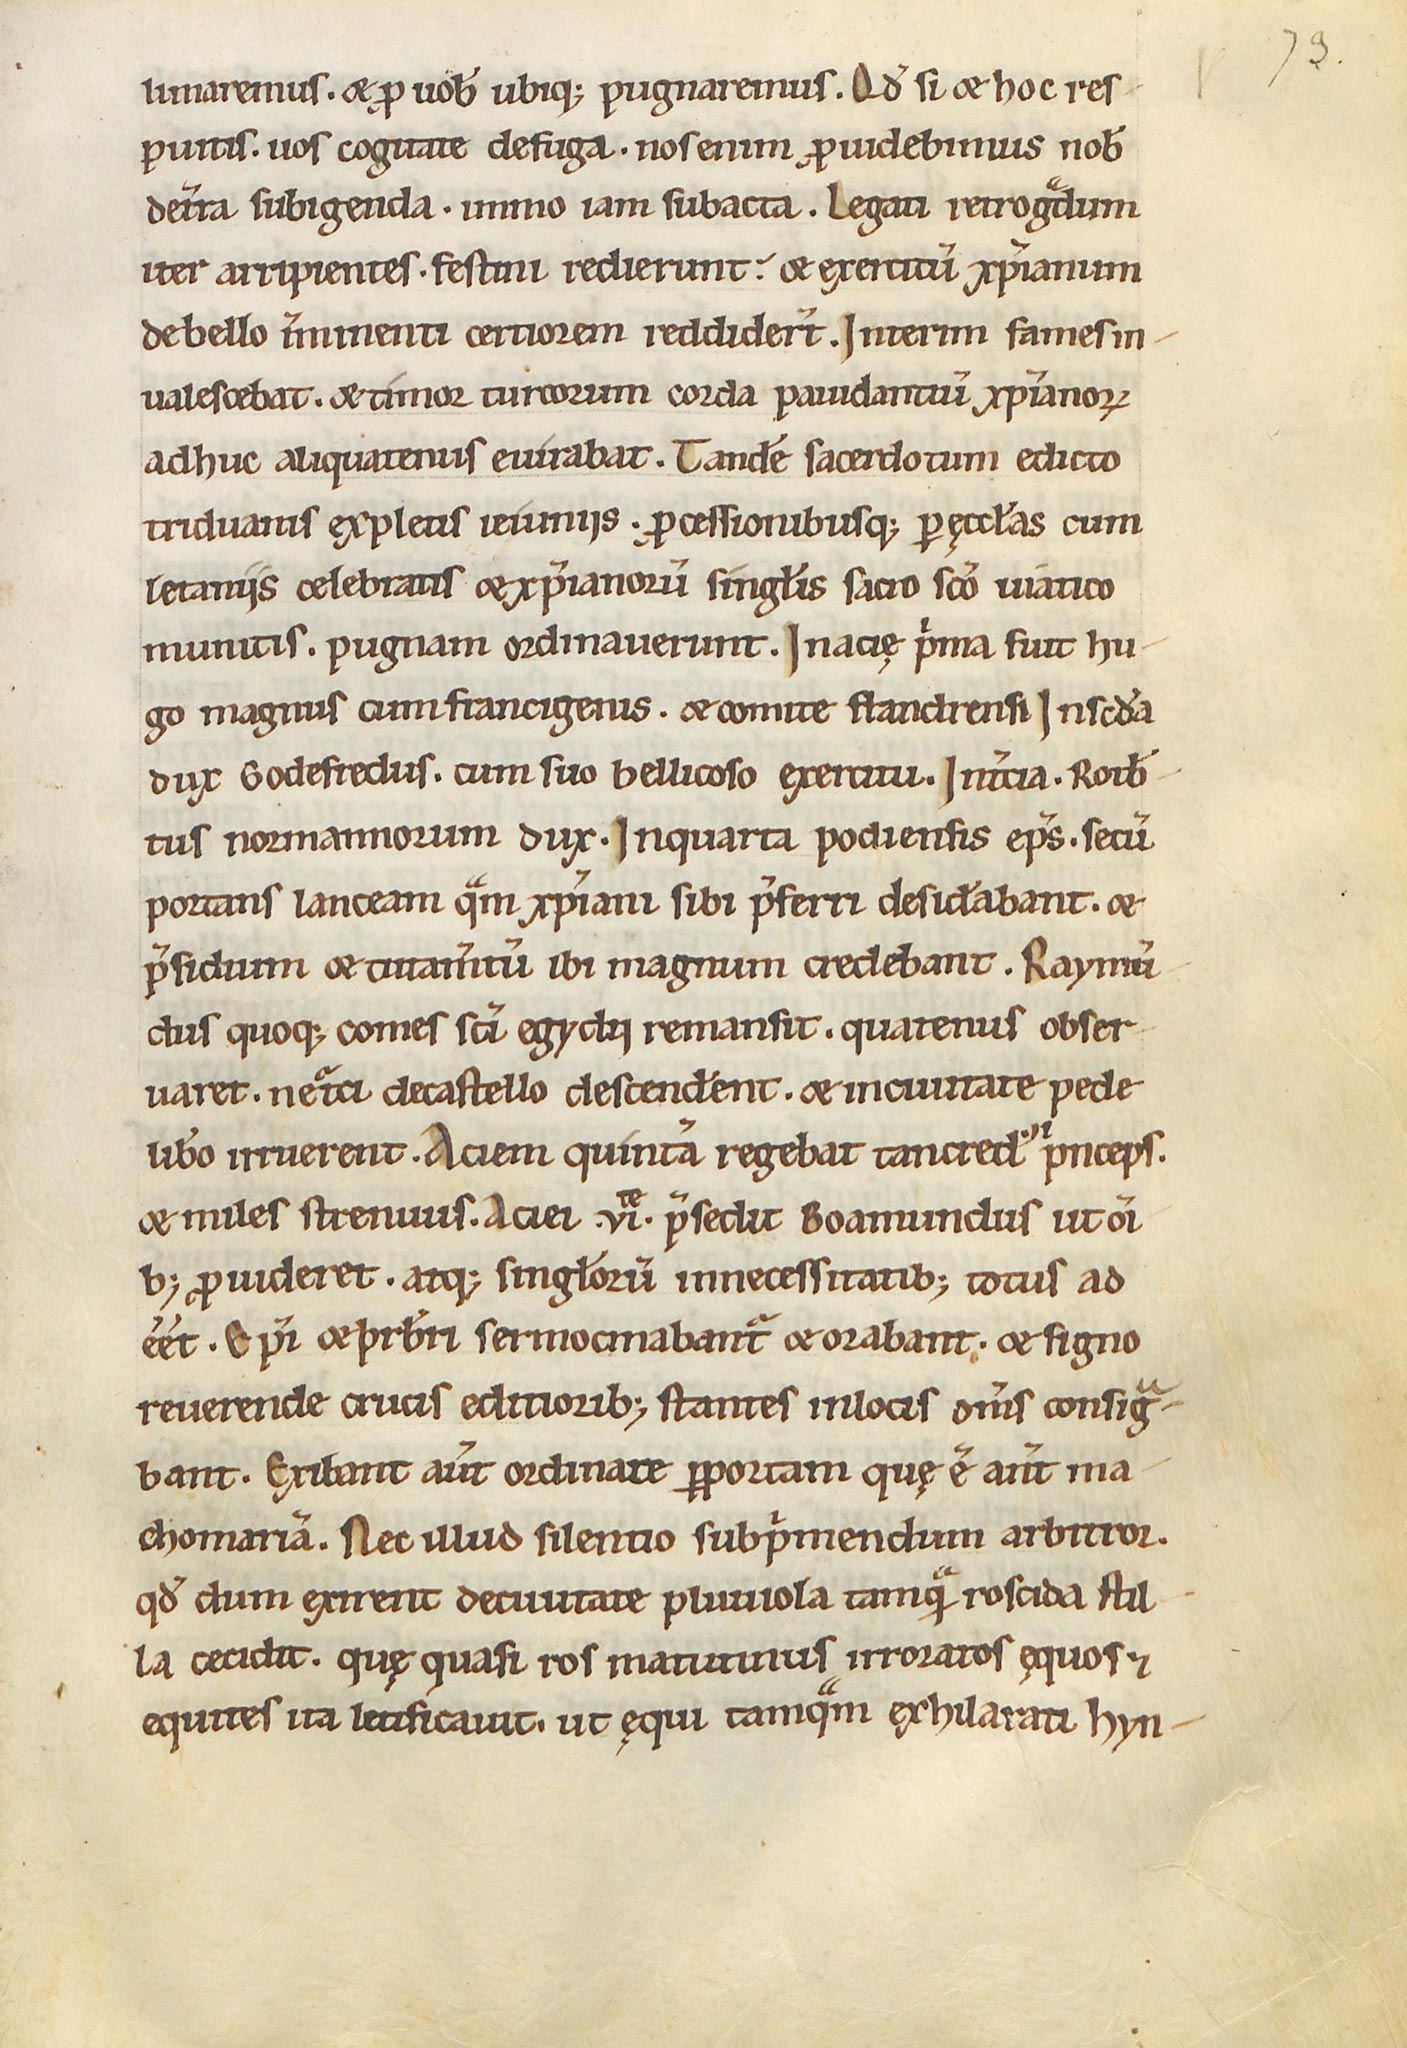 73.
limaremus. & ꝓ uob̄ ubiq; pugnaremus. Qđ si & hoc res-
puitis. uos cogitate defuga. nos enim ꝓuidebimus nob̄
det̄ra subigenda. immo iam subacta. Legati retrogᵃdum
iter arripientes. festini redierunt. & exercitū xp̄ianum
debello īminenti certiorem reddider̄t. Interim fames in-
ualescebat. & timor turcorum corda pauidantiū xp̄ianoꝝ
adhuc aliquatenus euirabat. Tandē sacerdotum edicto
triduanis expletis ieiuniis. ꝓcessionibusq; ꝑ ęccl̄as cum
letaniis celebratis & xp̄ianorū singl̄is sacro sc̄o uiatico
munitis. pugnam ordinauerunt. In acię pⁱma fuit hu-
go magnus cum francigenis. & comite flandrensi In sc̄da
dux Godefredus. cum suo bellicoso exercitu. In t̄cia. Rotb̄-
tus normannorum dux. In quarta podiensis ep̄s. secū
portans lanceam qᵃm xp̄iani sibi p̄ferri desid̄abant. &
p̄sidium & tutam̄tū ibi magnum credebant. Raymū-
dus quoq; comes sc̄i egydii remansit. quatenus obser-
uaret. ne tᵃci de castello descend̄ent. & in ciuitate pede
lib̄o irruerent. Aciem quintā regebat tancred᾽ pⁱnceps.
& miles strenuus. Aciei .vi.ᵗᵉ p̄sedit Boamundus ut oī
b; ꝓuideret. atq; singl̄orū in necessitatib; totus ad
eēt. Ep̄i & prb̄ri sermocinabantᵃ & orabant. & signo
reuerende crucis editiorib; stantes in locis om̄s consigᵃ-
bant. Exibant aūt ordinate ꝑ portam quę ē aūt ma-
chomariā. Nec illud silentio subpⁱmendum arbitror.
qđ dum exirent de ciuitate pluuiola tamqᵃ roscida stil-
la cecidit. quę quasi ros matutinus irroratos ęquos ⁊
equites ita letificauit. ut ęqui tamqᵃm exhilarati hyn-